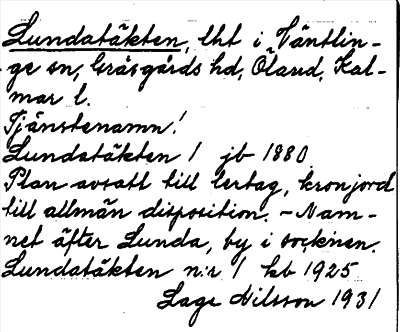 Lundatäkten, lht i Väntlin-
ge sn, Gräsgårds hd, Öland, Kal-
mar l.
Tjänstenamn!
Lundatäkten 1 jb 1880
Plan avsatt till lertag, kronjord
till allmän disposition. - Nam-
net äfter Lunda, by i socknen.
Lundatäkten n:r 1 kb 1925
Lage Nilsson 1931